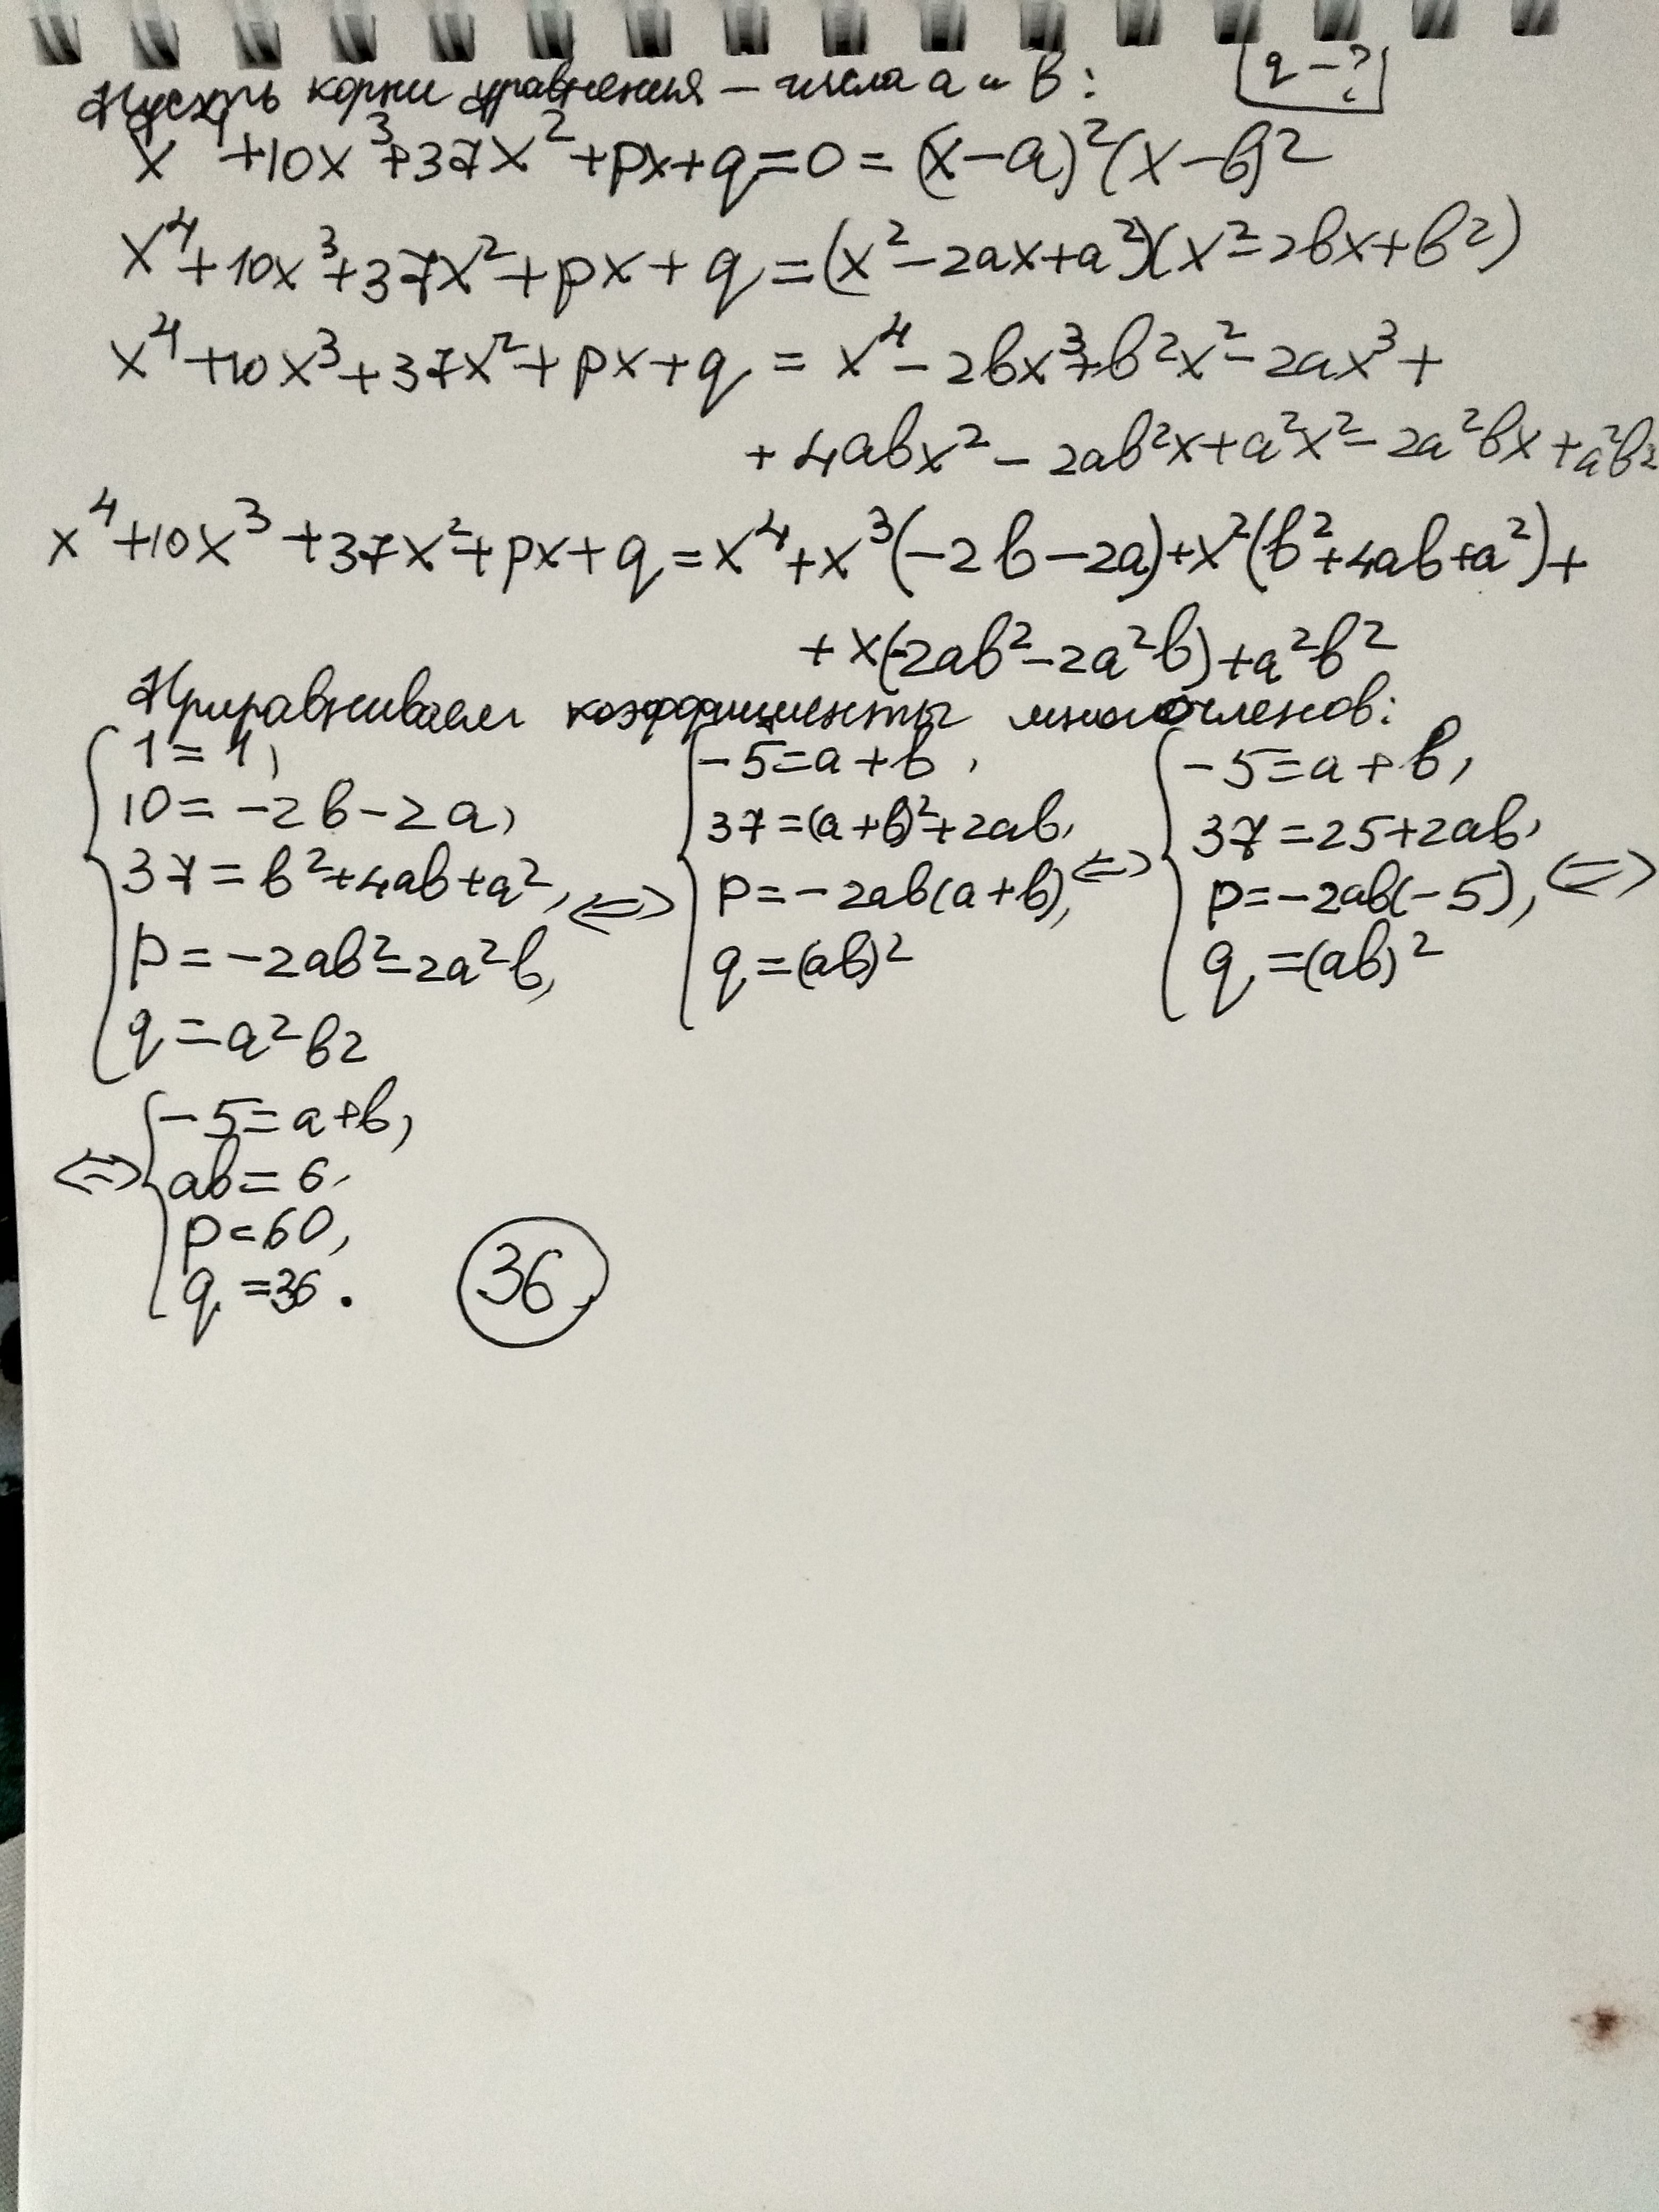 Пусть корни уравнения – числа a и b: q – ?
x⁴+10x³+37x²+px+q=0=(x–a)²(x–b)²
x⁴+10x³+37x²+px+q=(x²–2ax+a²)(x²–2bx+b²)
x⁴+10x³+37x²+px+q=x⁴–2bx³+b²x²–2ax³+
+4abx²–2ab²x+a²x²–2a²bx+a²b²
x⁴+10x³+37x²+px+q=x⁴+x³(–2b–2a)+x²(b²+4ab+a²)+
+x(-2ab²–2a²b)+a²b²
Приравниваем коэффициенты многочленов:
{ 1=1,
10=–2b–2a,
37=b²+4ab+a²,
p=–2ab²–2a²b,
q=a²b2
⇔ { –5=a+b,
37=(a+b)²+2ab,
p=–2ab(a+b),
q=(ab)²
⇔ { –5=a+b,
37=25+2ab,
p=–2ab(–5),
q=(ab)²
⇔
⇔ { –5=a+b,
ab=6,
p=60,
q=36.
36